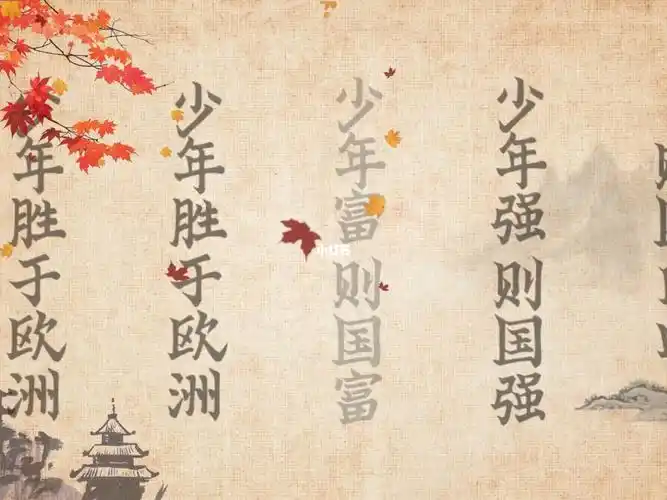 少年强则国强
少年富则国富
少年胜于欧洲
年胜于欧洲